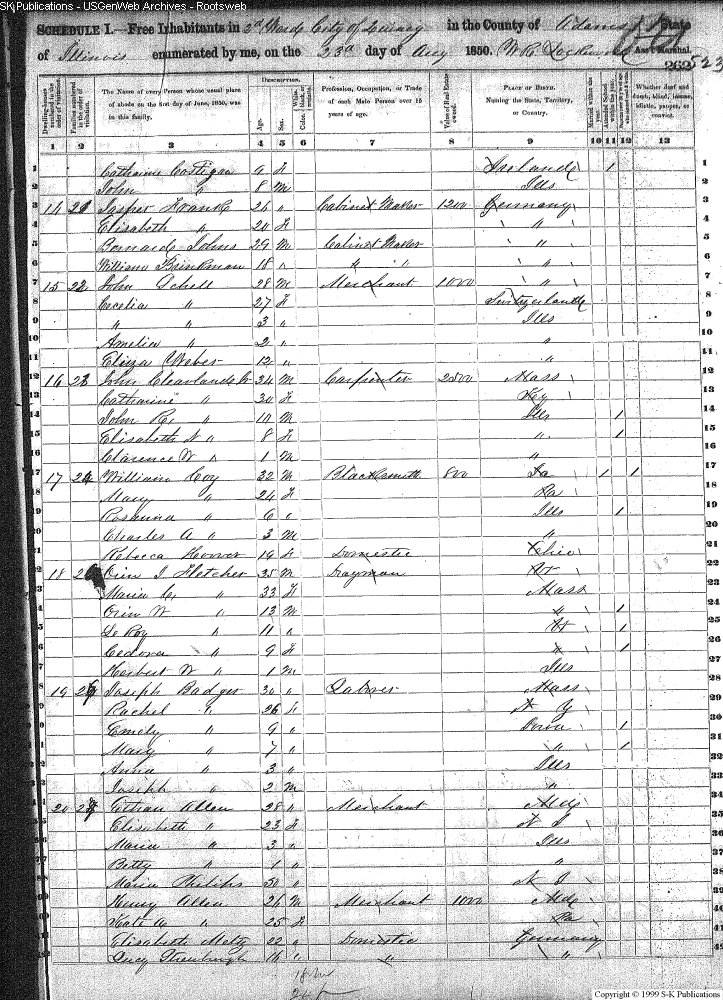 SK Publications - USGenWeb Archives - Rootsweb
SCHEDULE I.—Free Inhabitants in 2d Ward City of Quincy in the County of Adams State
of Illinois enumerated by me, on the 23d day of Aug 1850. Ass't Marshal.
262 523
Dwelling-houses numbered in the order of visitation. Families numbered in the order of visitation. The Name of every Person whose usual place of abode on the first day of June, 1850, was in this family. Description. Age. Sex. Color, White, black, or mulatto. Profession, Occupation, or Trade of each Male Person over 15 years of age. Value of Real Estate owned. Place of Birth. Naming the State, Territory, or Country. Married within the year. Attended School within the year. Persons over 20 y'rs of age who cannot read & write. Whether deaf and dumb, blind, insane, idiotic, pauper, or convict.
1 2 3 4 5 6 7 8 9 10 11 12 13
1 Catharine Costigan 9 F Ireland 1 1
2 John " 8 M Ills 2
3 14 21 Jasper Frank 26 " Cabinet Maker 1200 Germany 3
4 Elisabeth " 20 F " 4
5 Bernard Johns 29 M Cabinet Maker " 5
6 William Brinkman 18 " " " " 6
7 15 22 John Schell 28 M Merchant 1000 " 7
8 Cecelia " 27 F Switzerland 8
9 " " 3 " Ills 9
10 Amelia " 2 " " 10
11 Eliza Weber 12 " " 11
12 16 23 John Cleaveland 34 M Carpenter 2500 Mass 12
13 Catharine " 30 F Ky 13
14 John R. " 10 M Ills 1 14
15 Elisabeth N " 8 F " 1 15
16 Clarence W " 1 M " 16
17 17 24 William Coy 32 M Blacksmith 800 1 1 17
18 Mary " 24 F Pa 18
19 Rosanna " 6 " Ills 1 19
20 Charles A " 3 M " 20
21 Rebecca Hoover 19 F Domestic Ohio 21
22 18 Orin J. Fletcher 35 M Drayman Vt 22
23 Maria C. " 33 F Mass 23
24 Orin W " 13 M " 1 24
25 Le Roy " 11 " Vt 1 25
26 Cedora " 9 F " 1 26
27 Herbert W " 1 M Ills 27
28 19 26 Joseph Badger 30 " Laborer Mass 28
29 Rachel " 26 F N Y 29
30 Emely " 9 " Iowa 1 30
31 Mary " 7 " " 1 31
32 Anna " 3 " Ills 32
33 Joseph " 2 M " 33
34 20 27 Allen 28 " Merchant Md 34
35 Elisabeth " 23 F N J 35
36 Maria " 3 " Ills 36
37 Betty " 1 " " 37
38 Maria Philips 50 " N J 38
39 Henry Allen 26 M Merchant 1000 Md 39
40 Kate A " 25 F Pa 40
41 Elisabeth Meltz 22 " Domestic Germany 41
42 Lucy 16 " " " 42
Copyright © 1999 S-K Publications